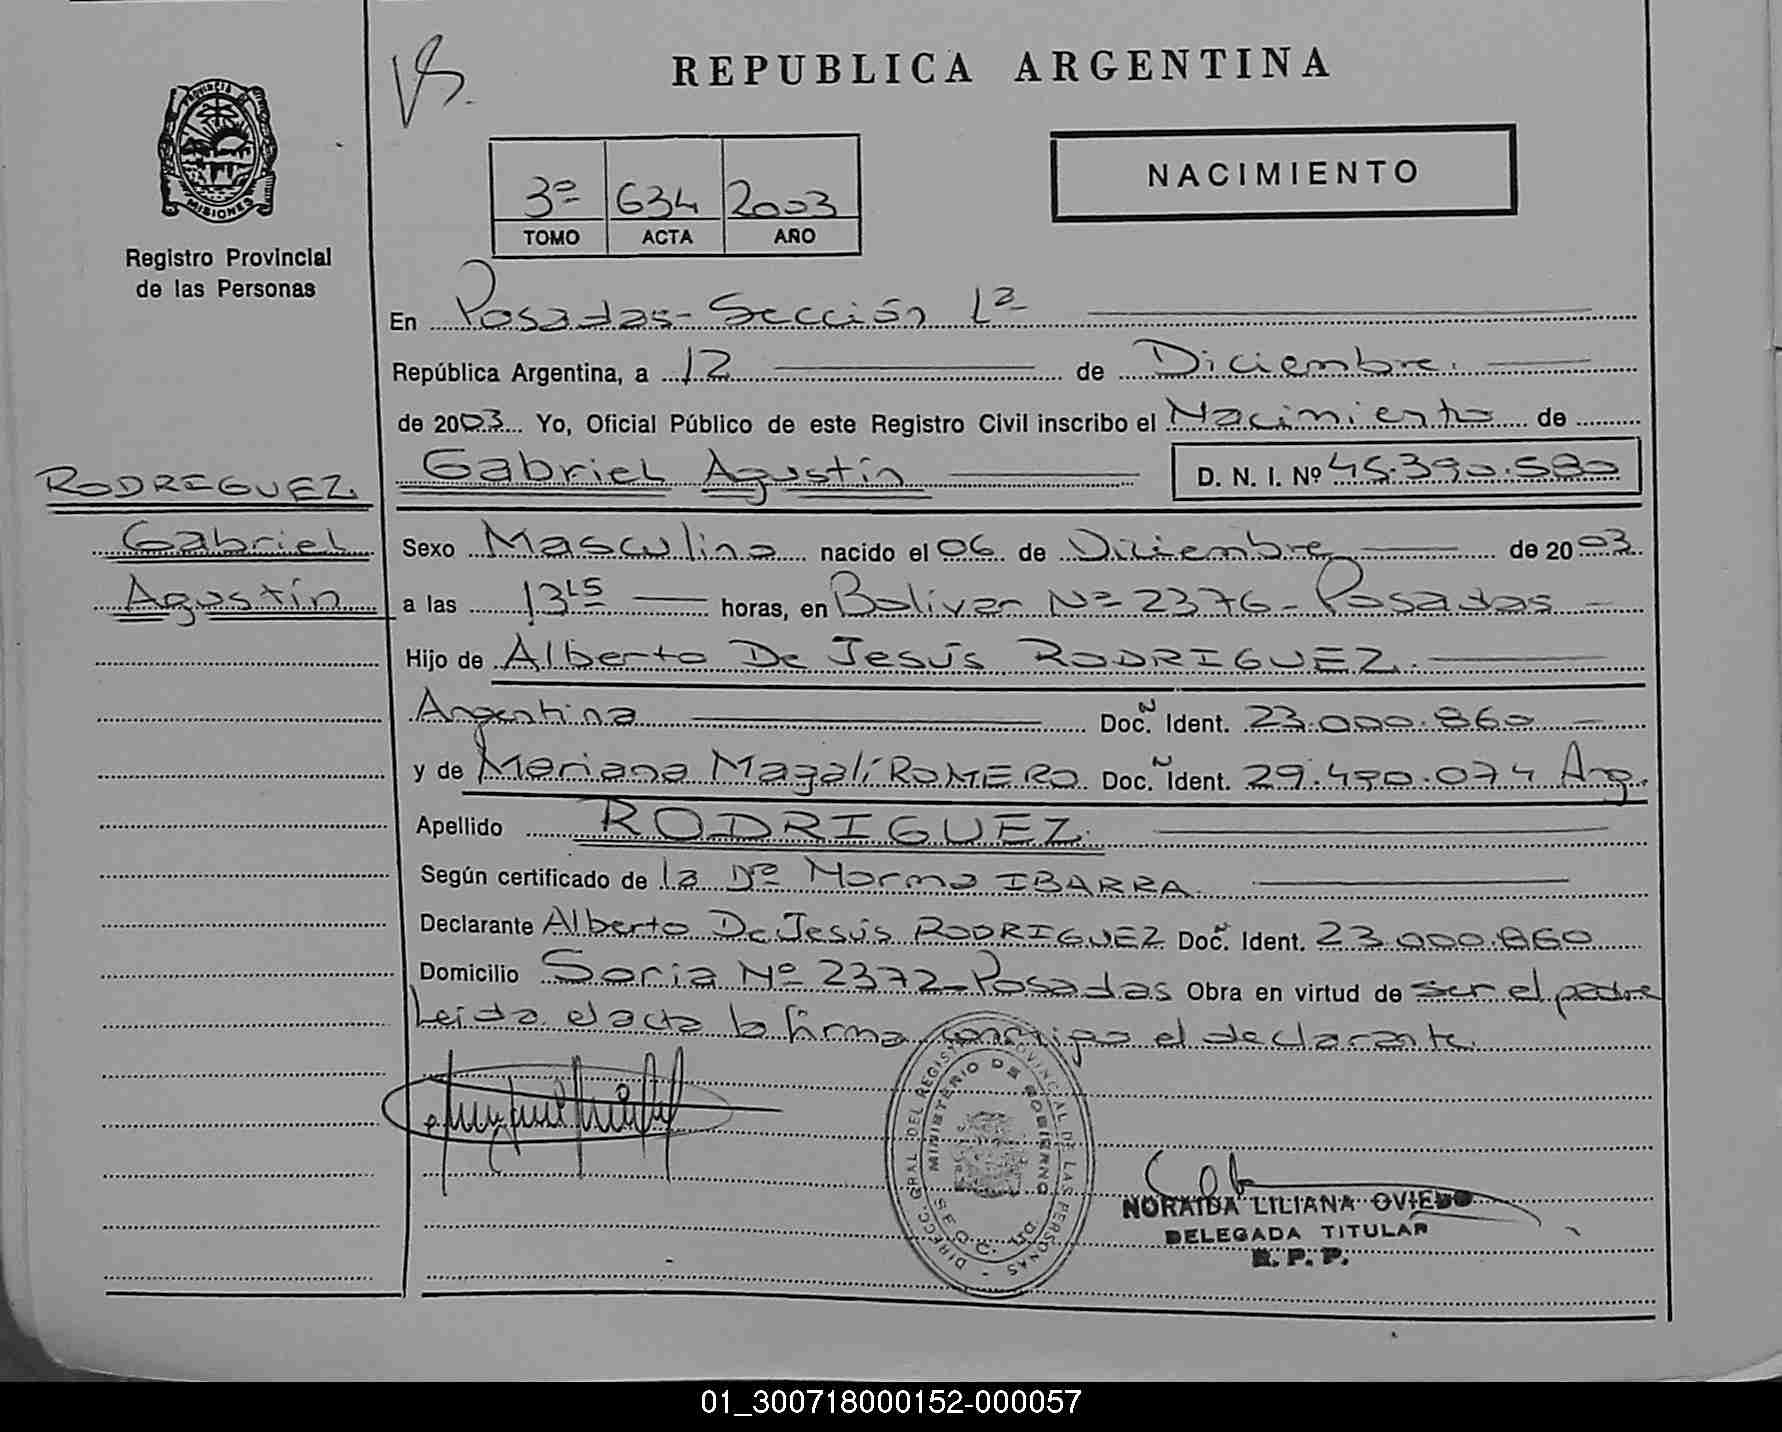 VS.
REPUBLICA ARGENTINA
PROVINCIA DE
MISIONES
Registro Provincial
de las Personas
3º 634 2003
TOMO ACTA AÑO
NACIMIENTO
En Posadas-Sección 1ª
República Argentina, a 12 de Diciembre.
de 2003. Yo, Oficial Público de este Registro Civil inscribo el Nacimiento de
RODRIGUEZ
Gabriel
Agustín
Gabriel Agustín D. N. I. Nº 45.390.580
Sexo Masculino nacido el 06 de Diciembre de 2003
a las 13 15 horas, en Bolivar Nº 2376-Posadas
Hijo de Alberto De Jesús RODRIGUEZ.
Argentina Doc. N Ident. 23.000.860
y de Mariana Magalí ROMERO Doc. N Ident. 29.490.074 Arg.
Apellido RODRIGUEZ.
Según certificado de la Dra Norma IBARRA
Declarante Alberto De Jesús RODRIGUEZ Doc. N Ident. 23.000.860
Domicilio Soria Nº 2372-Posadas Obra en virtud de ser el padre
Leida el acta la firma conmigo el declarante.
DIRECC. GRAL DEL REGISTRO PROVINCIAL DE LAS PERSONAS
MINISTERIO DE GOBIERNO
NORAIDA LILIANA OVIEDO
DELEGADA TITULAR
R. P. P.
01_300718000152-000057